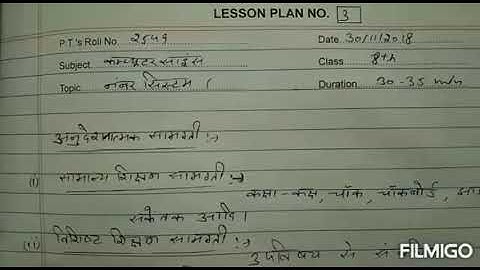 LESSON PLAN NO. 3
P.T's Roll No. 2549 Date 30/11/2018
Subject कम्प्यूटर साइंस Class 8th
Topic नंबर सिस्टम । Duration 30-35 min
अनुदेशनात्मक सामग्री :→
(i) सामान्य शिक्षण सामग्री :→
कक्षा-कक्ष, चॉक, चॉकबोर्ड,
संकेतक आदि।
(ii) विशिष्ट शिक्षण सामग्री :→
उपविषय से
FILMIGO